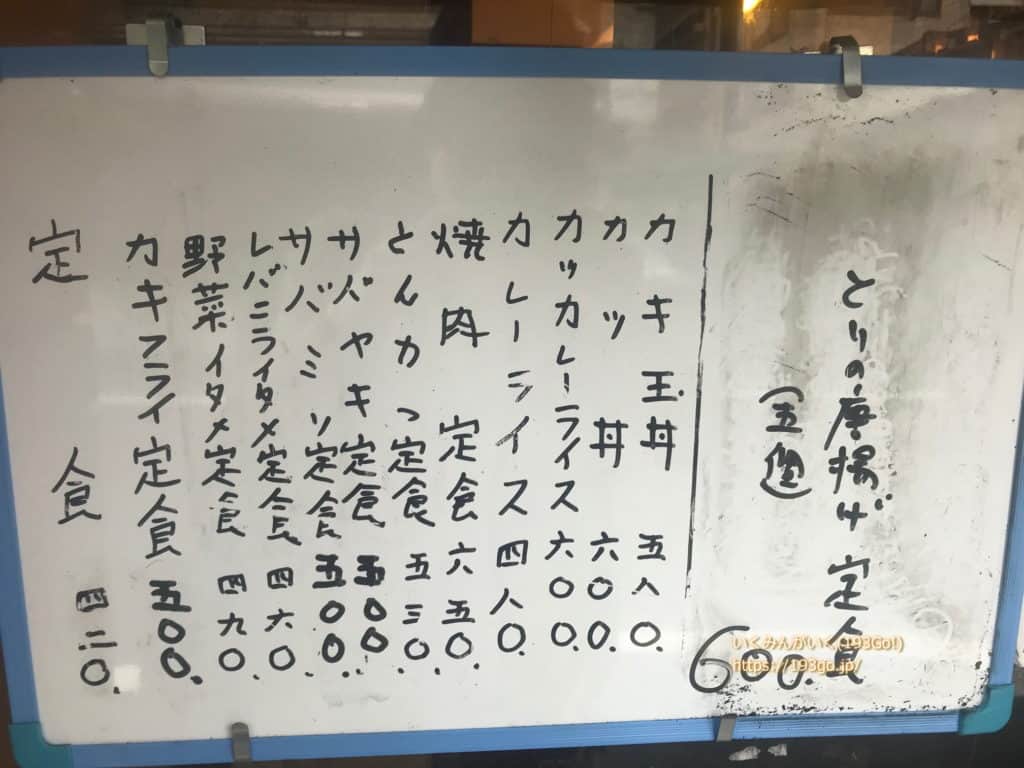 とりの唐揚げ定食
600.
カキ玉丼 五八〇.
カツ丼 六〇〇.
カツカレーライス 六〇〇.
カレーライス 四八〇.
焼肉定食 六五〇.
とんかつ定食 五三〇.
サバヤキ定食 五〇〇
サバミソ定食 五〇〇
レバニライタメ定食 四六〇.
野菜イタメ定食 四九〇
カキフライ定食 五〇〇.
定食 四二〇.
いくみんがいく(193Go!)
https://193go.jp/